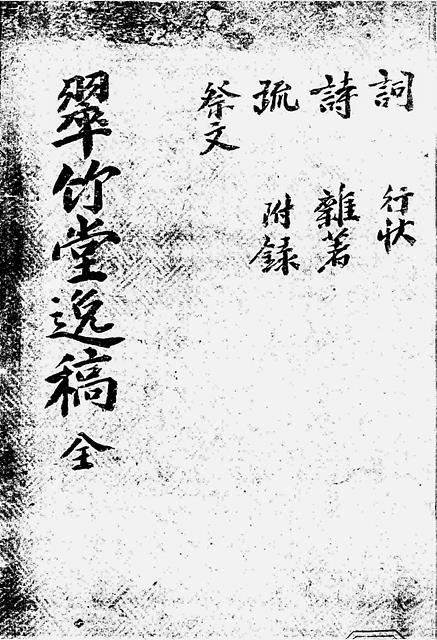 詞 行狀
詩 雜著
疏 附録
祭文
翠竹堂逸稿 全